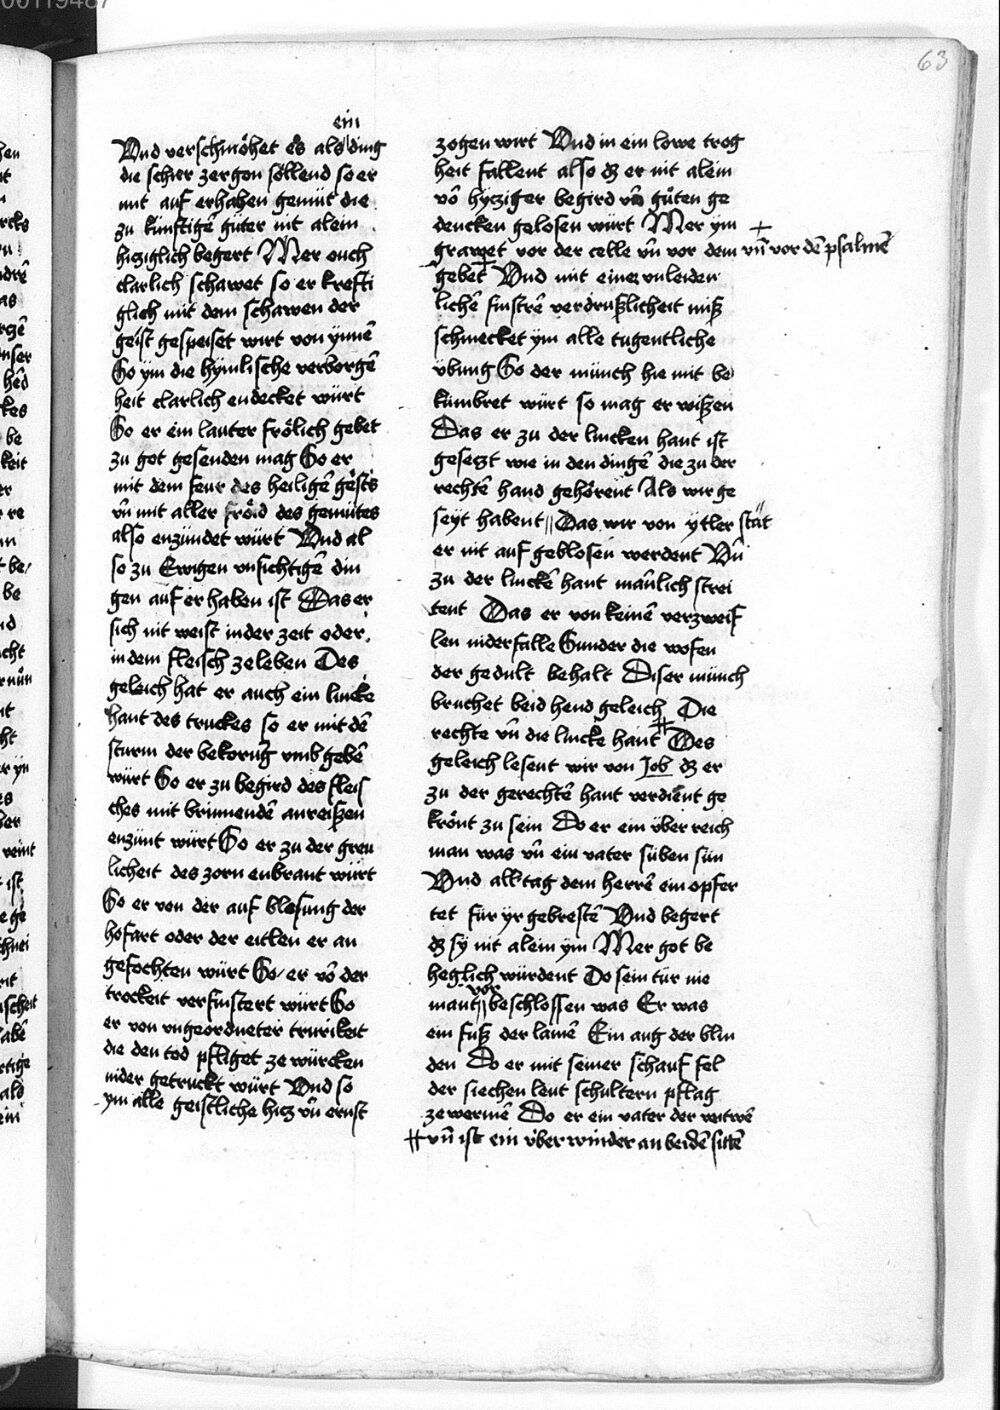 63
ein
Vnd verschmöhet es als ding
die schier zergon söllend so er
mit auf erhaben gemüt die
zu künftigē güter nit alein
hicziglich begert Mer ouch
clarlich schawet so er krefti
glich mit dem schawen der
geist gespeiset wirt von ynnē
So ym die hymlische verborgē
heit clarlich endecket würt
So er ein lauter frölich gebet
zu got gesenden mag So er
mit dem feur des heiligē gests
vn̄ mit aller fröid des gemütes
also enzündet würt Vnd al
so zu Ewigen vnsichtigē din
gen auf erhaben ist Das er
sich nit weist in der zeit oder
in dem fleisch zeleben Des
geleich hat er auch ein lincke
hant des truckes so er mit dē
sturm der bekorūg vmb gebē
würt So er zu begird des fleis
ches mit brinnendē anreiszen
enzünt würt So er zu der greu
licheit des zorn enbrant würt
So er von der auf blesung der
hofart oder der eitlen er an
gefochten würt So er vō der
trockeit verfinstert würt So
er von vngeordneter trurikeit
die den tod pfliget ze würcken
nider getruckt würt Vnd so
ym alle geistliche hicz vn̄ ernst
zogen wirt Vnd in ein lowe trog
heit fallent also dz er nit alein
vō hycziger begird vn̄ güten ge
dencken gelosen würt Mer ym +
grawet vor der celle vn̄ vor dem vn̄ vor dē psalmē
gebet Vnd mit einer vnleiden
lichē finstrē verdruszlicheit misz
schmecket ym alle tugentliche
vbung So der münch hie mit be
kümbret würt so mag er wiszen
Das er zu der lincken hant ist
gesezt wie in den dingē die zu der
rechtē hand gehörent Als wir ge
seyt habent Das wir von ytler stät
er nit auf geblosen werdent Vn̄
zu der linckē hant manlich strei
tent Das er von keinē verzweif
len niderfalle Sunder die wofen
der gedult behalt Diser münch
bruchet beid hend geleich Die
rechte vn̄ die lincke hant # Des
geleich lesent wir von Job dz er
zu der gerechtē hant verdient ge
krönt zu sein Do er ein über reich
man was vn̄ ein vater süben sün
Vnd all tag dem herrē ein opfer
tet für yr gebrestē Vnd begert
dz sy nit alein ym Mer got be
heglich würdent Do sein tür nie
vor
mant beschlossen was Er was
ein fusz der lamē Ein aug der blin
den Do er mit seiner schauf fel
der siechen leut schultern pflag
ze wermē Do er ein vater der weitwē
# vn̄ ist ein über winder an beidē sittē